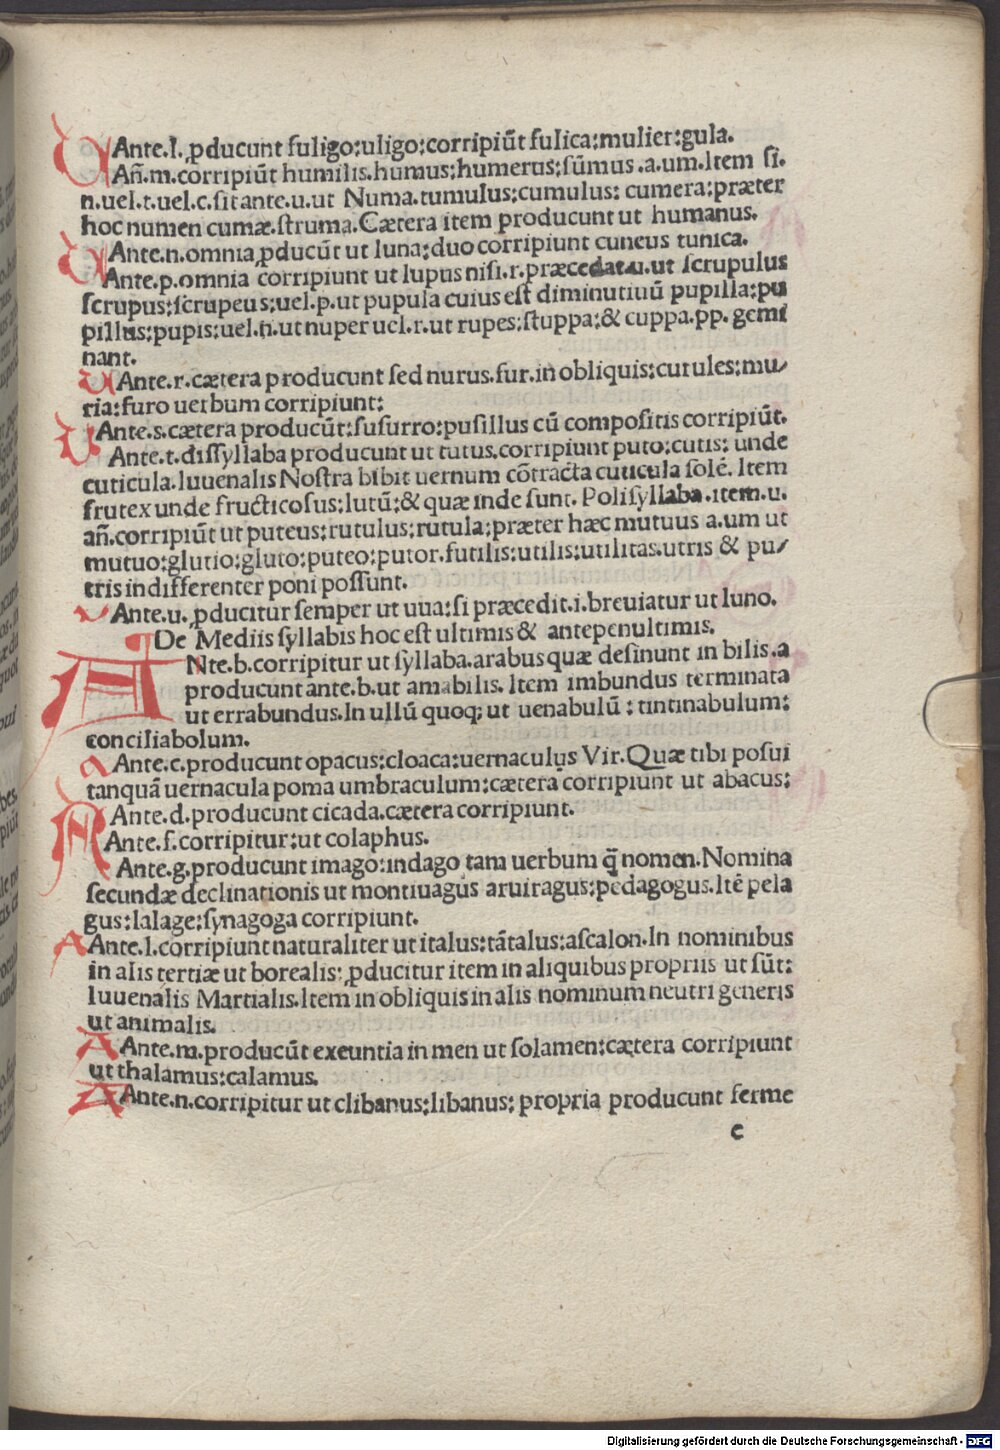 U Ante.l. ꝓducunt fuligo:uligo:corripiūt fulica:mulier:gula.
Añ.m.corripiūt humilis.humus:humerus:ſūmus .a.um.Item ſi.
n.uel.t.uel.c.ſit ante.u.ut Numa.tumulus:cumulus: cumera:præter
hoc numen cumæ.ſtruma.Cætera item producunt ut humanus.
U Ante.n.omnia ꝓducūt ut luna:duo corripiunt cuneus tunica.
Ante.p.omnia corripiunt ut lupus niſi.r.præcedat.u.ut ſcrupulus
ſcrupus:ſcrupeus:uel.p.ut pupula cuius eſt diminutiuū pupilla:pu
pillus:pupis:uel.n.ut nuper uel.r.ut rupes:ſtuppa:& cuppa.pp.gemi
nant.
U Ante.r.cætera producunt ſed nurus.fur.in obliquis:curules:mu/
ria:furo uerbum corripiunt:
U Ante.s.cætera producūt:ſuſurro:puſillus cū compoſitis corripiūt.
Ante.t.diſſyllaba producunt ut tutus.corripiunt puto:cutis: unde
cuticula.Iuuenalis Noſtra bibit uernum cōtracta cuticula ſolē. Item
frutex unde fructicoſus:lutū:& quæ inde ſunt. Poliſyllaba.item.u.
añ.corripiūt ut puteus:rutulus:rutula:præter hæc mutuus a.um ut
mutuo:glutio:gluto:puteo:putor.futilis:utilis:utilitas.utris & pu/
tris indifferenter poni poſſunt.
U Ante.u. ꝓducitur ſemper ut uua:ſi præcedit.i.breuiatur ut Iuno.
¶ De Mediis ſyllabis hoc eſt ultimis & antepenultimis.
A Nte.b.corripitur ut ſyllaba.arabus quæ deſinunt in bilis .a
producunt ante.b.ut amabilis. Item imbundus terminata
ut errabundus.In ullū quoqꝫ ut uenabulū : tintinabulum:
conciliabolum.
a Ante.c.producunt opacus:cloaca:uernaculus Vir.Quæ tibi poſui
tanquā uernacula poma umbraculum:cætera corripiunt ut abacus:
A Ante.d.producunt cicada.cætera corripiunt.
Ante.f.corripitur:ut colaphus.
Ante.g.producunt imago:indago tam uerbum q̄ nomen.Nomina
ſecundæ declinationis ut montiuagus aruiragus:pedagogus.Itē pela
gus:lalage:ſynagoga corripiunt.
A Ante.l.corripiunt naturaliter ut italus:tātalus:aſcalon.In nominibus
in alis tertiæ ut borealis: ꝓducitur item in aliquibus propriis ut ſūt:
Iuuenalis Martialis.Item in obliquis in alis nominum neutri generis
ut animalis.
A Ante.m.producūt exeuntia in men ut ſolamen:cætera corripiunt
ut thalamus:calamus.
A Ante.n.corripitur ut clibanus:libanus: propria producunt ferme
c
Digitalisierung gefördert durch die Deutsche Forschungsgemeinschaft - DFG